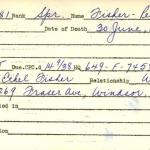 81 Rank Spr. Name Fisher - Ce
Date of Death 30 June,
Due. C.P.D. 14 7/38 H.Q. 649-F-745
Ethel Fisher Relationship W
269 Fraser Ave, Windsor,
ried in